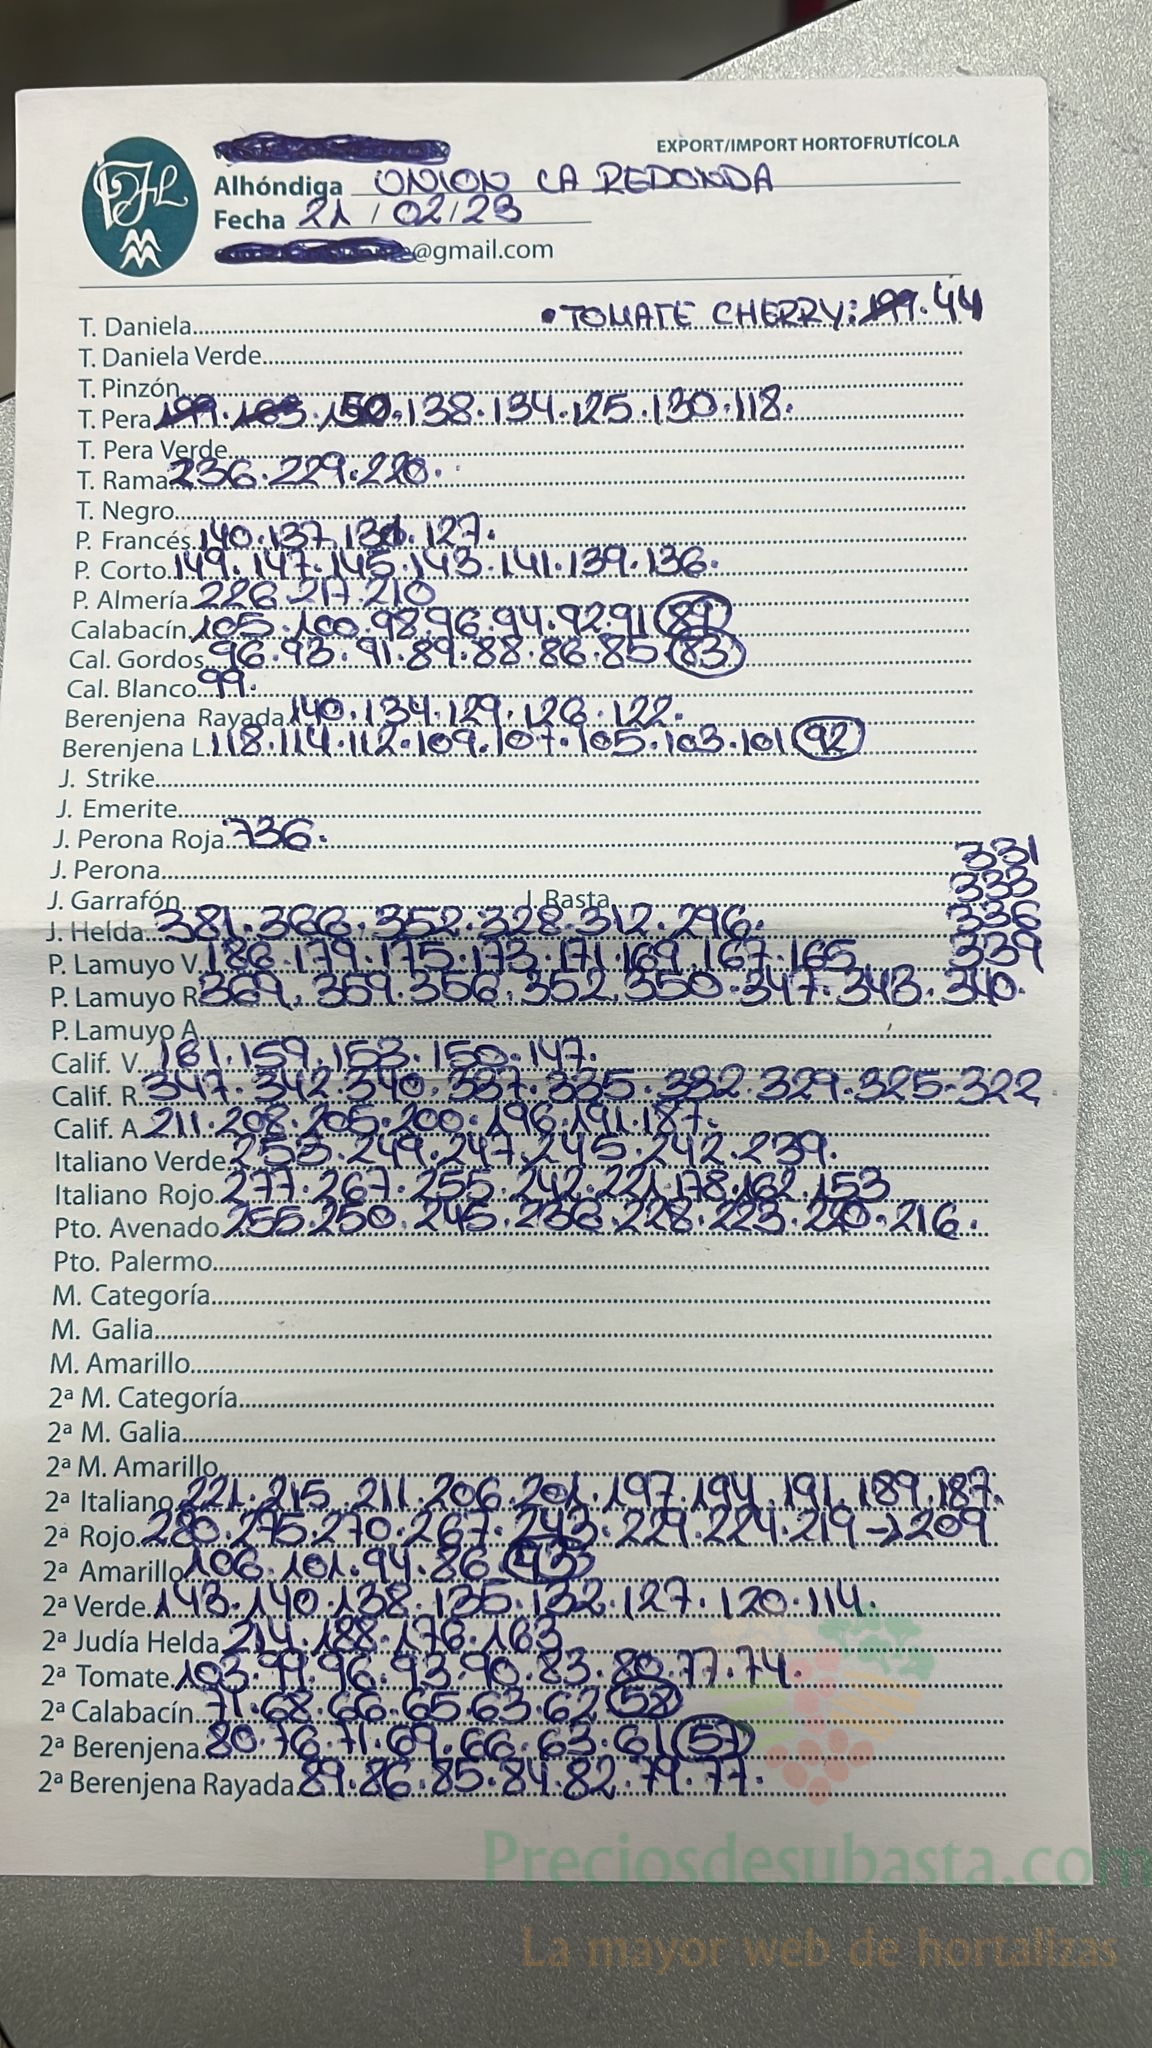 EXPORT/IMPORT HORTOFRUTÍCOLA
Alhóndiga UNION LA REDONDA
Fecha 21/02/23
@gmail.com
•TOMATE CHERRY: 199.44
T. Daniela
T. Daniela Verde
T. Pinzón
T. Pera 199.163.150.138.134.125.130.118.
T. Pera Verde
T. Rama 236.229.220.
T. Negro
P. Francés 140.137.131.127.
P. Corto 149.147.145.143.141.139.136.
P. Almería 226.217.210
Calabacín 105.100.98.96.94.92.91 89
Cal. Gordos 96.93.91.89.88.86.85 83
Cal. Blanco 99.
Berenjena Rayada 140.134.129.126.122.
Berenjena L. 118.114.112.109.107.105.103.101 92
J. Strike
J. Emerite
J. Perona Roja 736.
J. Perona 331
J. Garrafón J. Rasta 333
J. Helda 381.366.352.328.312.296. 336
P. Lamuyo V. 186.179.175.173.171.169.167.165 339
P. Lamuyo R 369.359.356.352.350.347.343.340.
P. Lamuyo A
Calif. V. 161.159.153.150.147.
Calif. R. 347.342.340.337.335.332.329.325.322
Calif. A 211.208.205.200.196.191.187.
Italiano Verde 253.249.247.245.242.239.
Italiano Rojo 277.267.255.242.221.178.162.153
Pto. Avenado 255.250.245.236.228.223.220.216.
Pto. Palermo
M. Categoría
M. Galia
M. Amarillo
2ª M. Categoría
2ª M. Galia
2ª M. Amarillo
2ª Italiano 221.215.211.206.201.197.194.191.189.187.
2ª Rojo 280.275.270.267.243.229.224.219→209
2ª Amarillo 106.101.94.86
2ª Verde 143.140.138.135.132.127.120.114.
2ª Judía Helda 214.188.176.163
2ª Tomate 103.99.96.93.90.83.80.77.74.
2ª Calabacín 71.68.66.65.63.62 58
2ª Berenjena 80.76.71.69.66.63.61 57
2ª Berenjena Rayada 89.86.85.84.82.79.77.
Preciosdesubasta.com
La mayor web de hortalizas